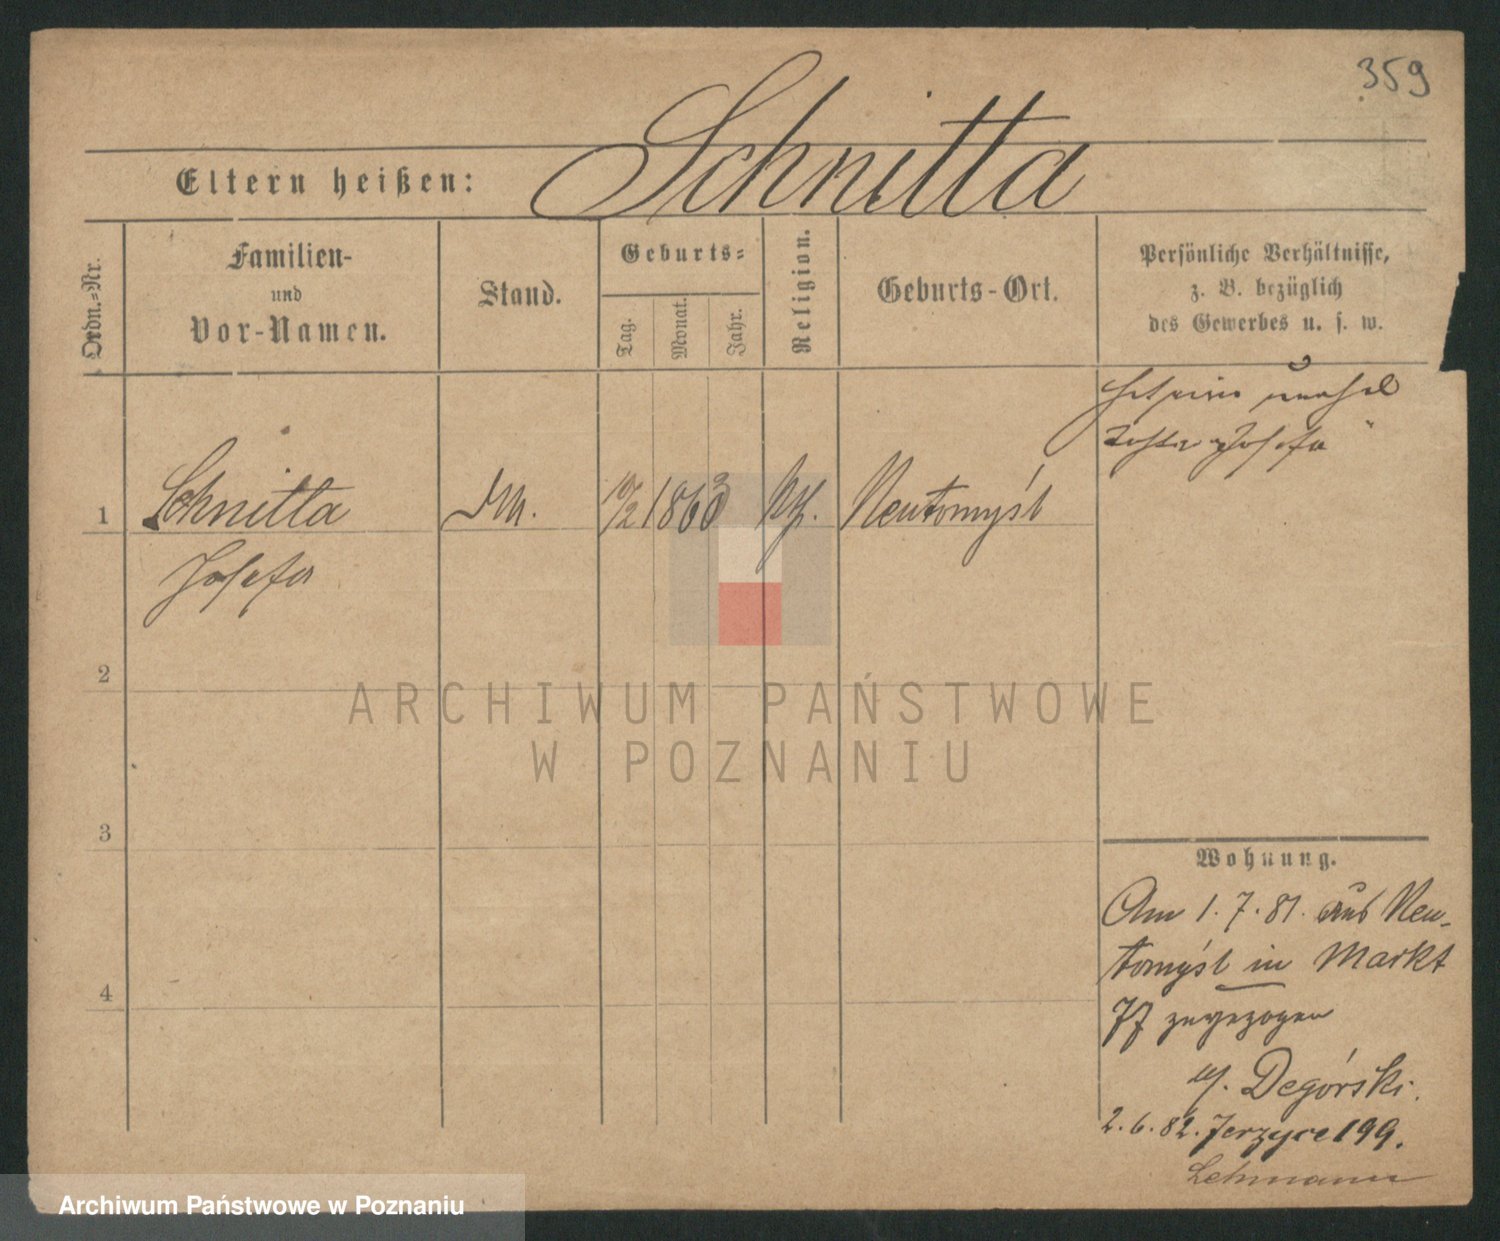 359
Eltern heißen: Schnitta
Ordn.-Nr.
Familien-
und
Vor-Namen.
Stand.
Geburts-
Tag.
Monat.
Jahr.
Religion.
Geburts-Ort.
Persönliche Verhältnisse,
z. B. bezüglich
des Gewerbes u. s. w.
Josefa
1 Schnitta 10/2 1863 Neutomyśl
Josefa
2
ARCHIWUM PAŃSTWOWE
W POZNANIU
3
Wohnung.
Am 1.7.81. aus Neu-
tomyśl in Markt
77 zugezogen
Degórski.
4
2.6.82. Jerzyce 199.
Lehmann
Archiwum Państwowe w Poznaniu